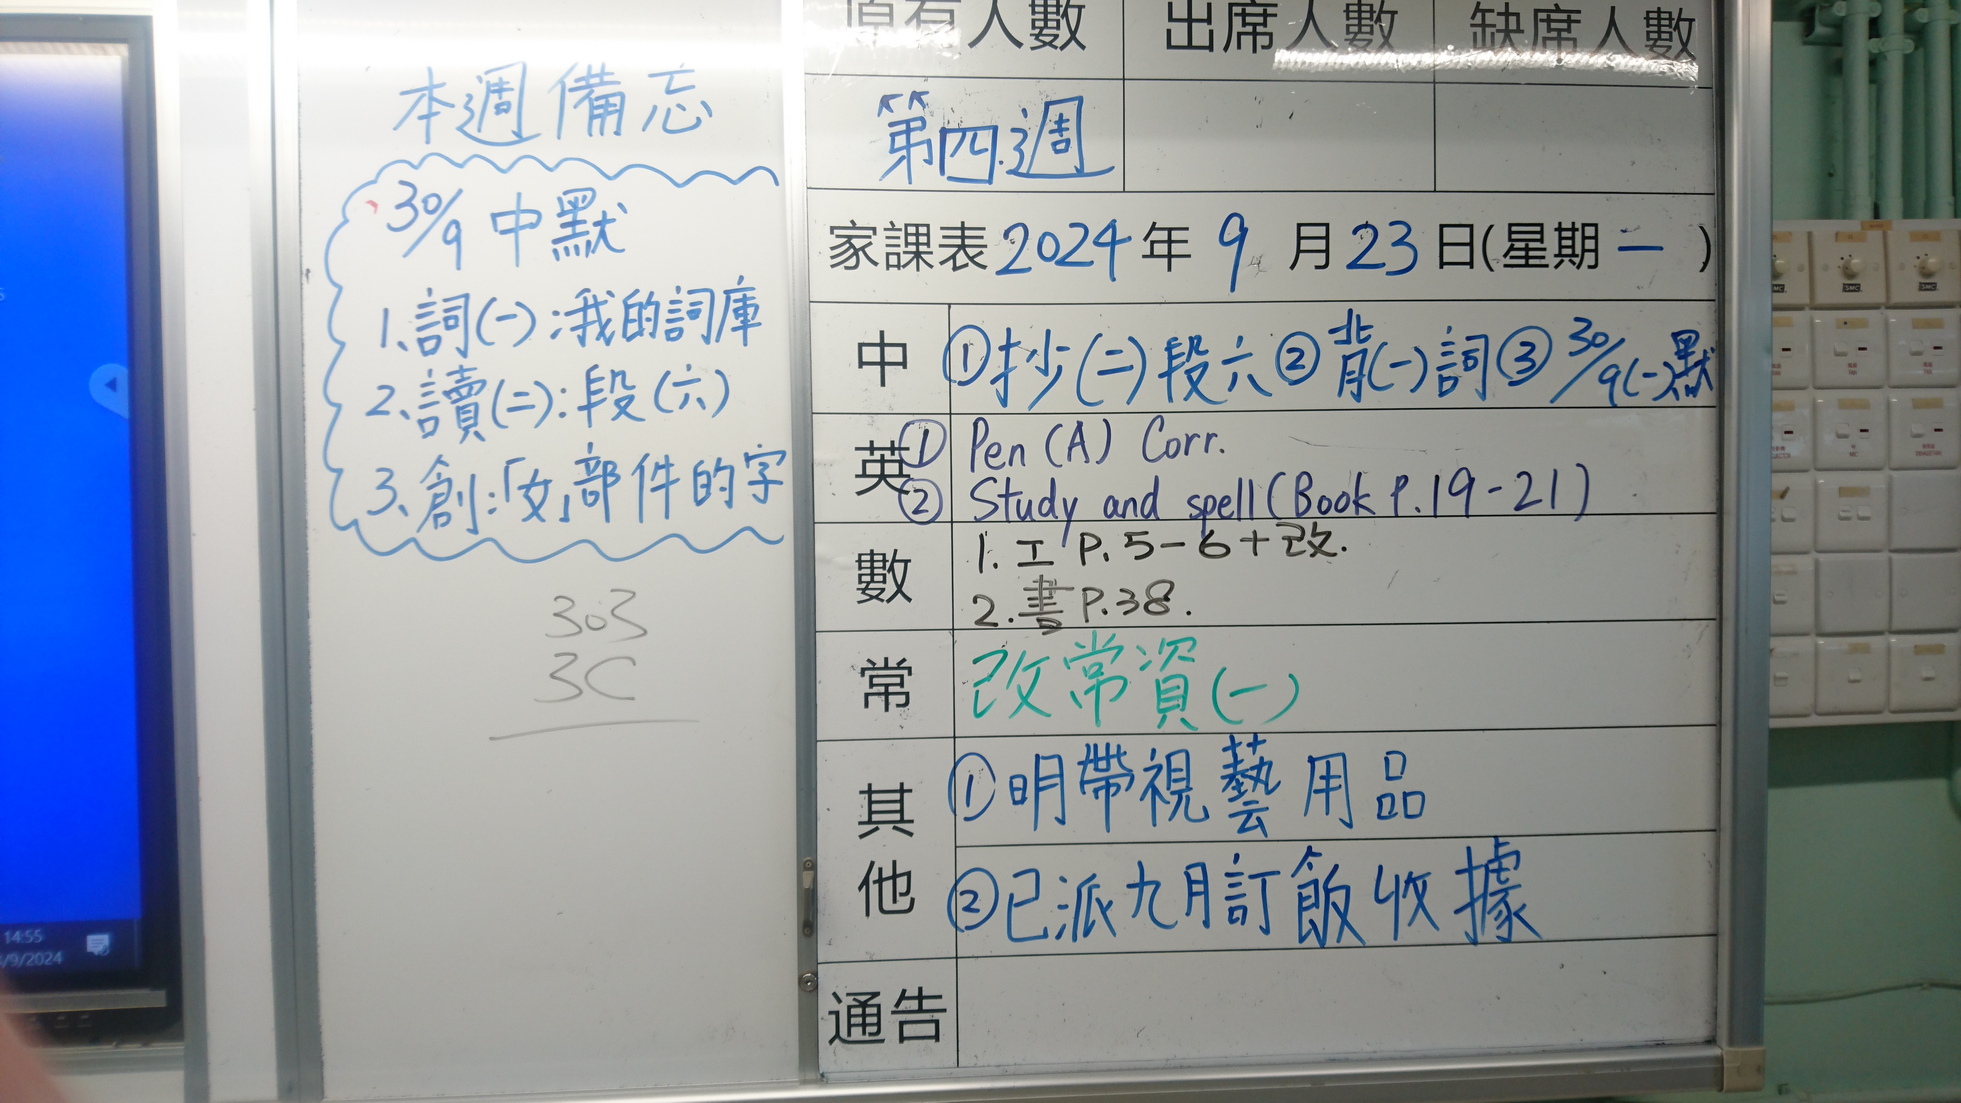 本週備忘
30/9 中默
1、詞(一):我的詞庫
2、讀(二):段(六)
3、創:「女」部件的字
303
3C
原有人數 出席人數 缺席人數
第四週
家課表2024年9月23日(星期一)
中 ①抄(二)段六②背(一)詞③30/9(一)默
英 ① Pen (A) Corr.
② Study and spell (Book P.19-21)
數 1. 工 P. 5-6+改.
2. 書 P.38.
常 改常資(一)
其他 ①明帶視藝用品
②已派九月訂飯收據
通告
14:55
/9/2024